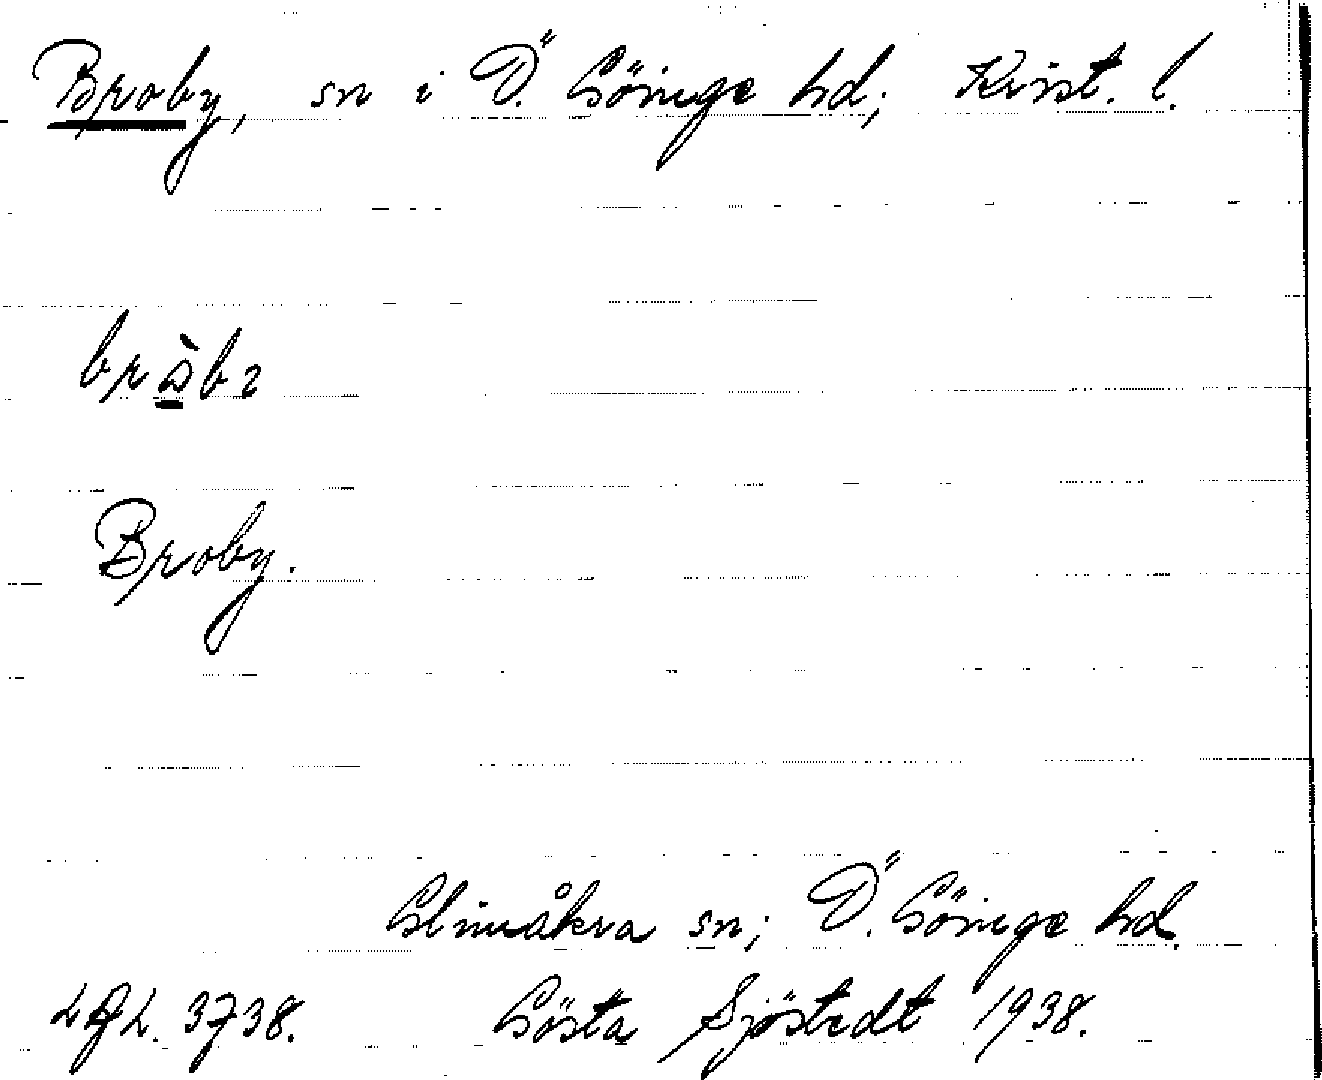 Broby, sn i Ö. Göinge hd; Krist. l.
bròbɿ
Broby.
Glimåkra sn; Ö. Göinge hd.
LAL. 3738. Gösta Sjöstedt 1938.